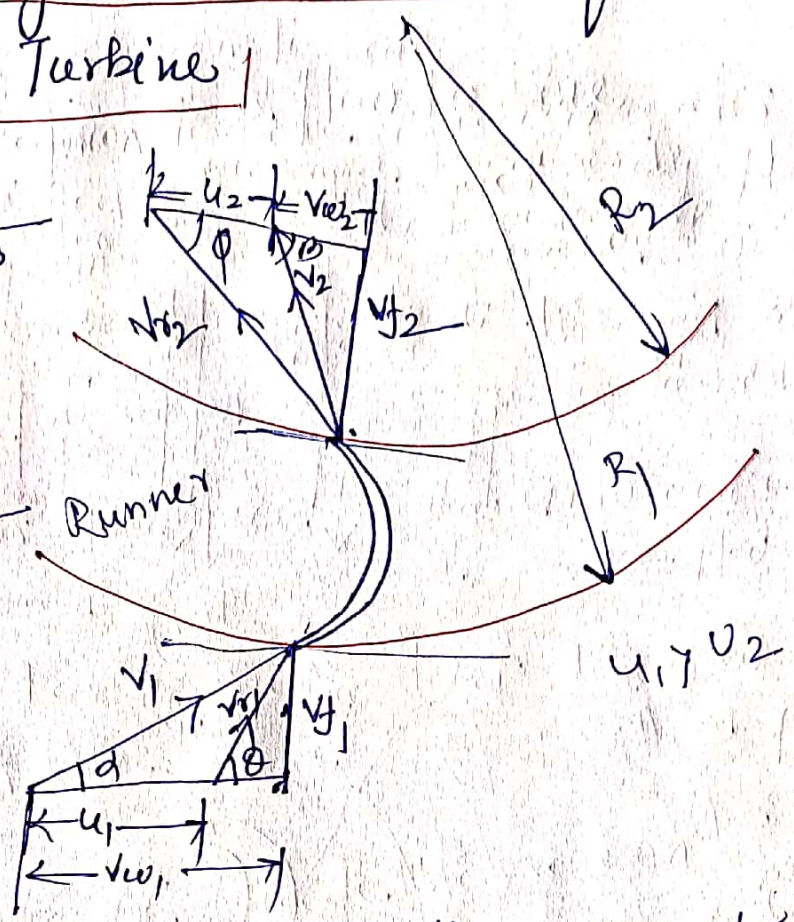 Turbine
u2
Vw2
φ
β
V2
Vr2
Vf2
R2
R1
Runner
u1 > u2
V1
Vr1
Vf1
α
θ
u1
Vw1